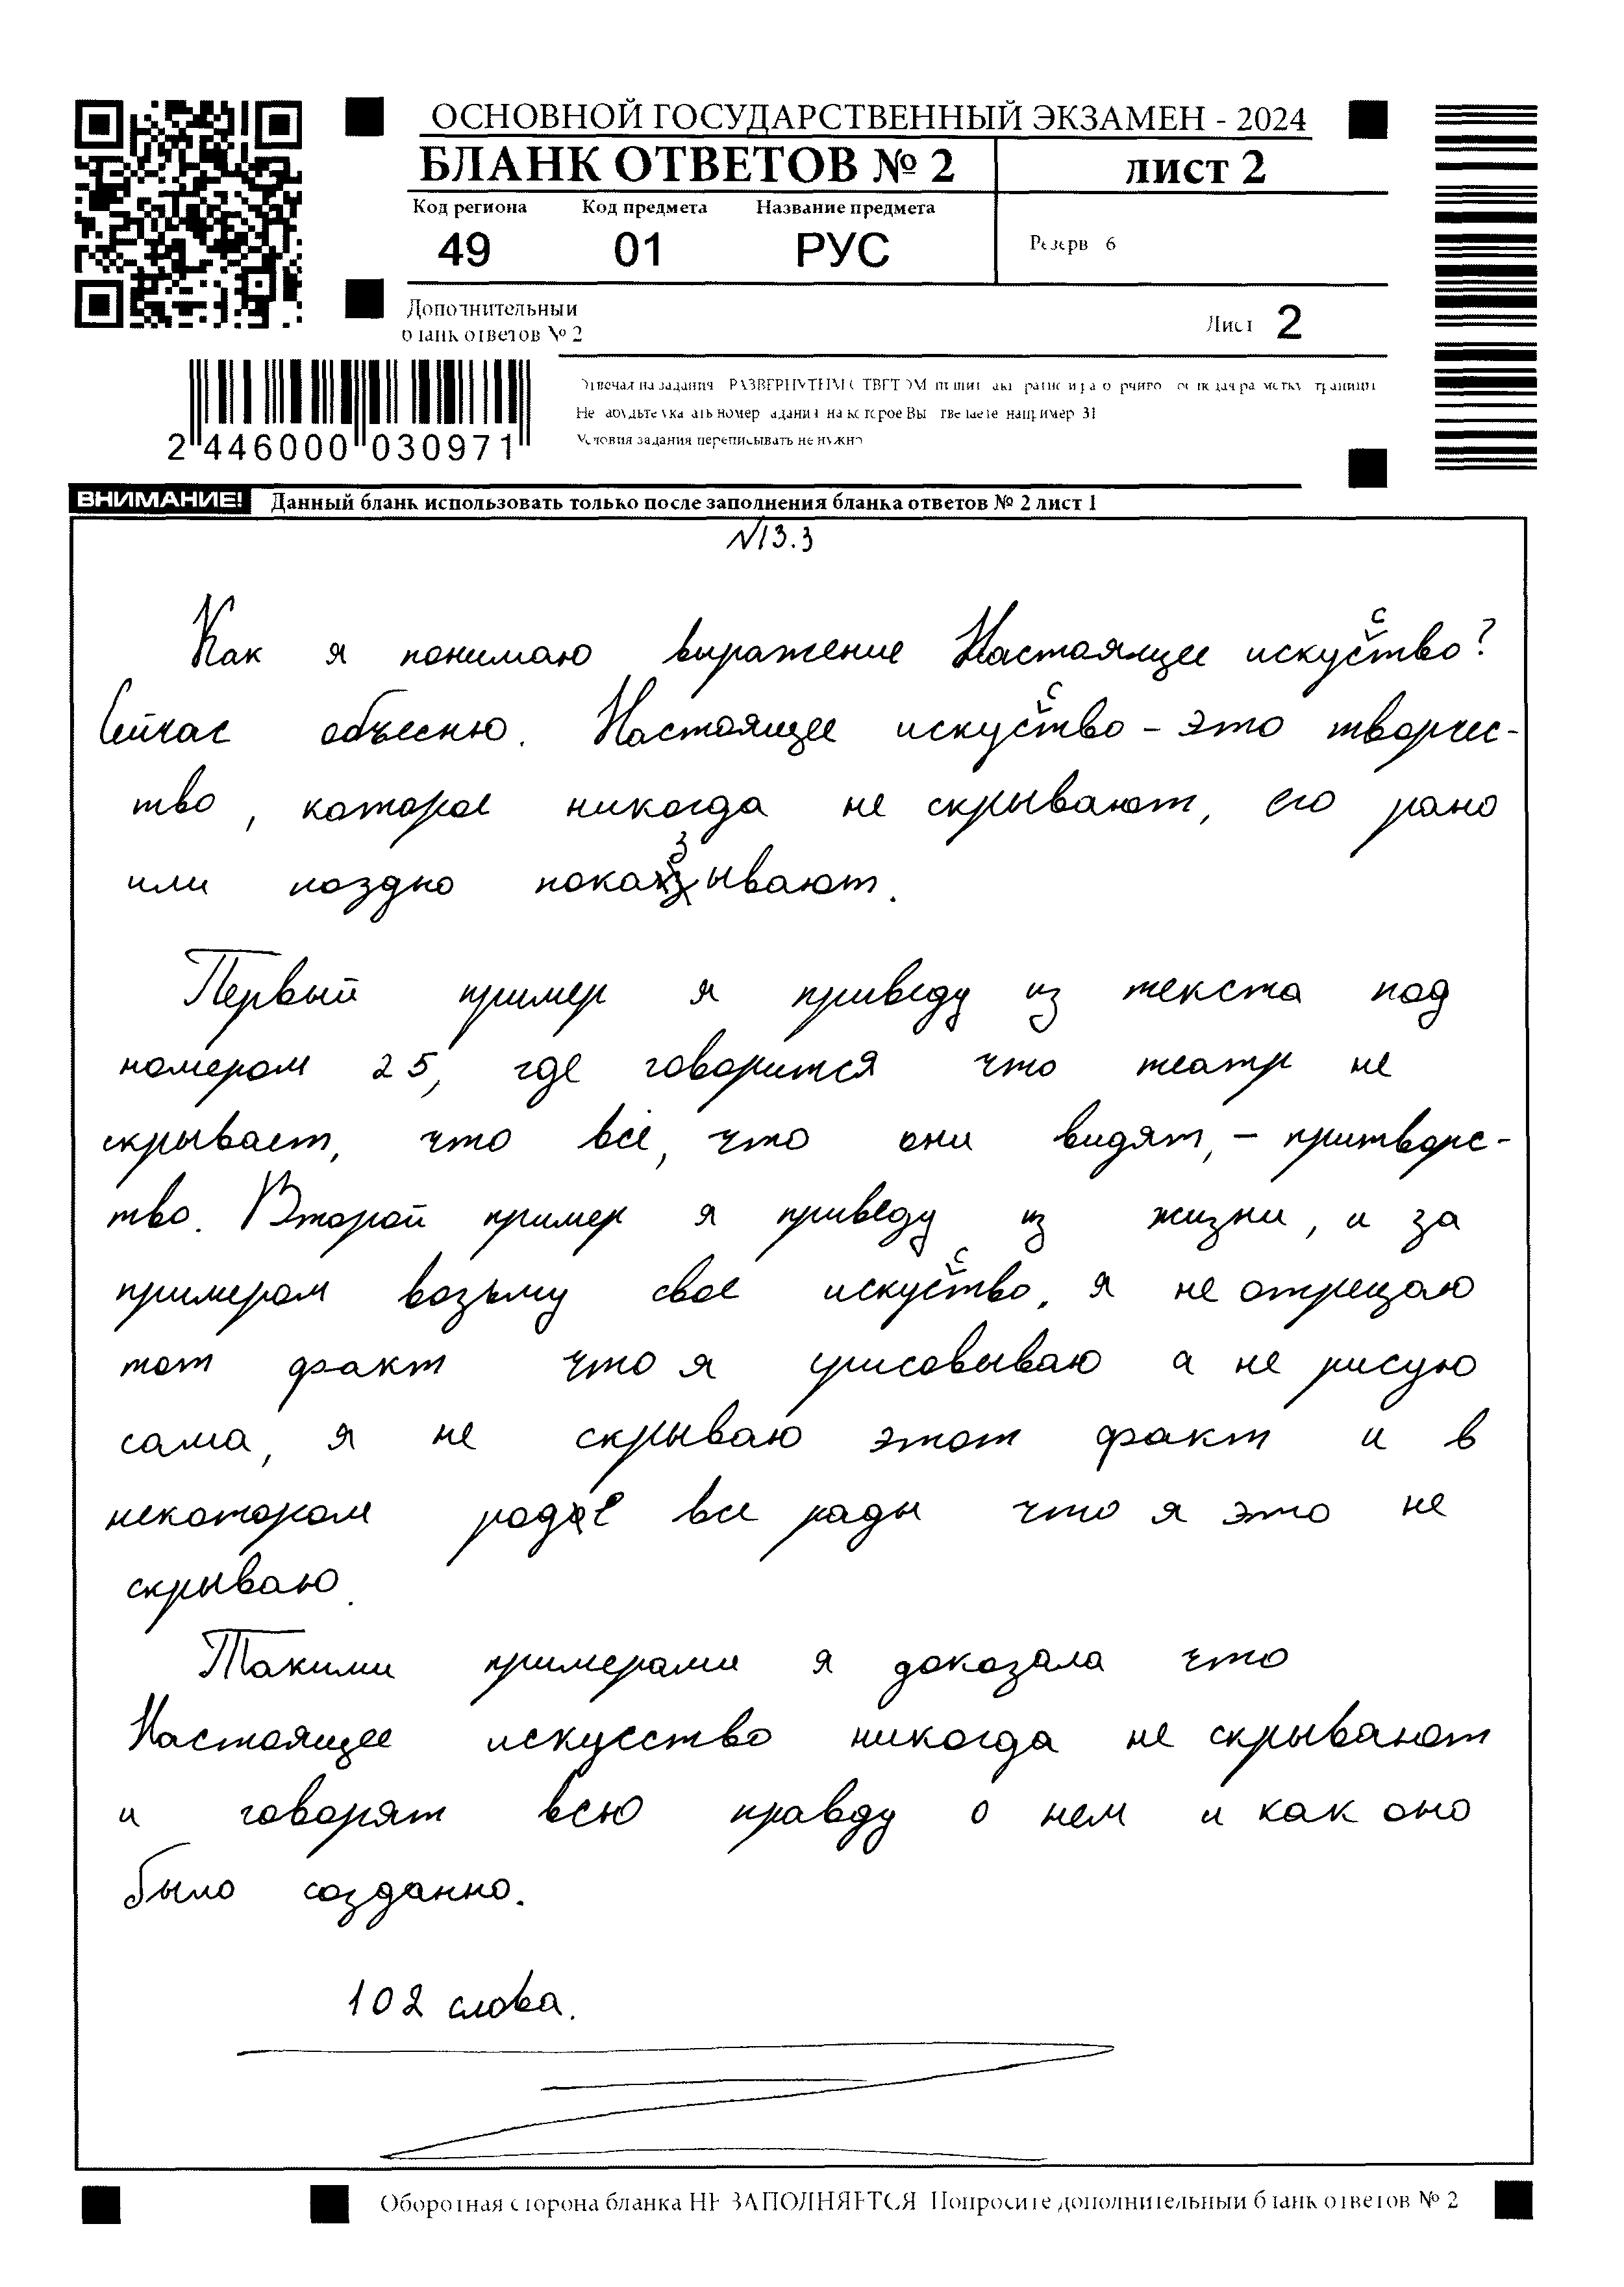 ОСНОВНОЙ ГОСУДАРСТВЕННЫЙ ЭКЗАМЕН - 2024
БЛАНК ОТВЕТОВ № 2
лист 2
Код региона Код предмета Название предмета
49 01 РУС
Резерв 6
Дополнительный
бланк ответов № 2
Лист 2
2 446000 030971
Отвечая на задания с РАЗВЕРНУТЫМ ОТВЕТОМ пишите
Не забудьте указать номер задания на которое Вы отвечаете например 31
Условия задания переписывать не нужно
ВНИМАНИЕ! Данный бланк использовать только после заполнения бланка ответов № 2 лист 1
№13.3
Как я понимаю выражение Настоящее искусство?
Сейчас объесню. Настоящее искусство - это творчес-
тво, которое никогда не скрывают, его рано
или поздно показывают.
Первый пример я приведу из текста под
номером 25, где говорится что театр не
скрывает, что всё, что они видят, - притворс-
тво. Второй пример я приведу из жизни, и за
примером возьму свое искусство, я не отрецаю
тот факт что я срисовываю а не рисую
сама, я не скрываю этот факт и в
некотором роде все рады что я это не
скрываю.
Такими примерами я доказала что
Настоящее искусство никогда не скрывают
и говорят всю правду о нем и как оно
было созданно.
102 слова.
Оборотная сторона бланка НЕ ЗАПОЛНЯЕТСЯ Попросите дополнительный бланк ответов № 2